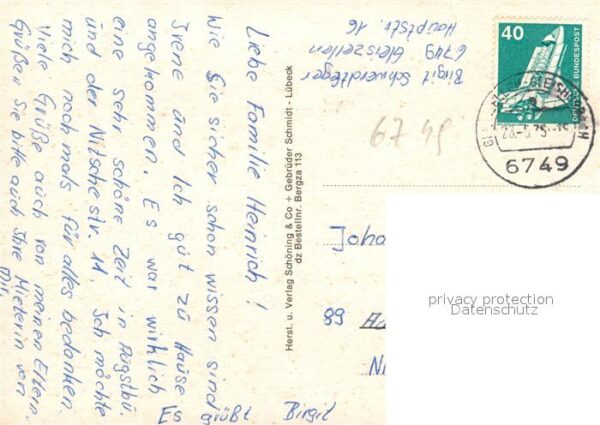 Birgit Schwerdtfeger
6749 Gleiszellen
Hauptstr. 16
Liebe Familie Heinrich!
Wie Sie sicher schon wissen sind
Irene und Ich gut zu Hause
angekommen. Es war wirklich
eine sehr schöne Zeit in Augsbu.
und der Nitschestr. 11. Ich möchte
mich noch mals für alles bedanken.
Viele Grüße auch von meinen Eltern.
Grüßen Sie bitte auch Ihre Mieterin von
mir.
Es grüßt Birgit
Herst. u. Verlag Schöning & Co + Gebrüder Schmidt - Lübeck
dz Bestellnr. Bergza 113
40
DEUTSCHE BUNDESPOST
6749
6749
Joha
89
privacy protection
Datenschutz